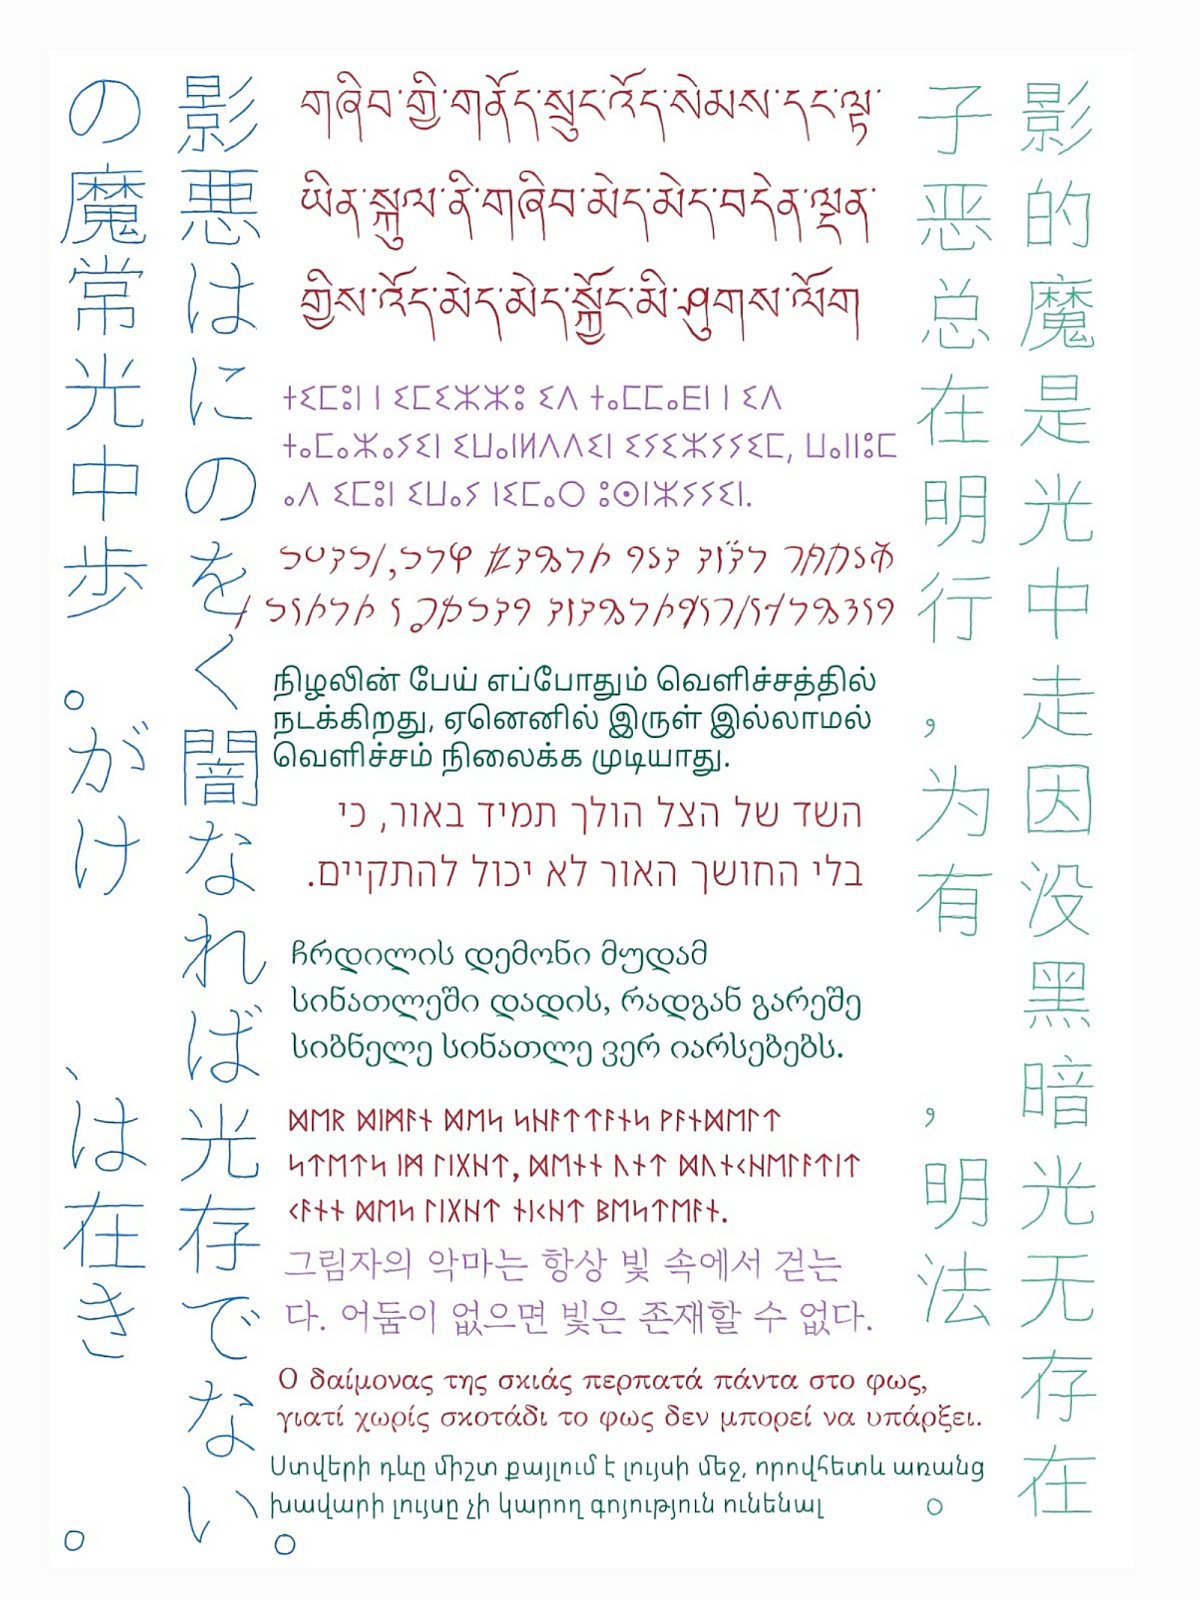 影悪はにのをく闇なれば光存でない。
の魔常光中歩。がけ、は在き。
གཞིབ་གྱི་གནོད་སྲུང་འོད་སེམས་དང་ལྟ་
ཡིན་སྐུལ་ནི་གཞིབ་མེད་མེད་བདེན་ལྡན་
གྱིས་འོད་མེད་མེད་སྐྱོང་མི་ཤུགས་ལོག
ⵜⵉⵎⵓⵏ ⵏ ⵉⵎⵉⵣⵣⵓ ⵉⴷ ⵜⴰⵎⵎⴰⴹⵏ ⵏ ⵉⴷ
ⵜⴰⵎⴰⵣⴰⵢⵉⵏ ⵉⵡⴰⵏⵍⴷⴷⵉⵏ ⵉⵢⵉⵣⵢⵢⵉⵎ, ⵡⴰⵏⵏⵓⵎ
ⴰⴷ ⵉⵎⵓⵏ ⵉⵡⴰⵢ ⵏⵉⵎⴰⵔ ⵓⵙⵏⵣⵢⵢⵉⵏ.
நிழலின் பேய் எப்போதும் வெளிச்சத்தில்
நடக்கிறது, ஏனெனில் இருள் இல்லாமல்
வெளிச்சம் நிலைக்க முடியாது.
השד של הצל הולך תמיד באור, כי
בלי החושך האור לא יכול להתקיים.
ჩრდილის დემონი მუდამ
სინათლეში დადის, რადგან გარეშე
სიბნელე სინათლე ვერ იარსებებს.
ᛞᛖᚱ ᛞᛁᛗᚨᚾ ᛞᛖᛋ ᛋᚺᚨᛏᛏᚨᚾᛋ ᚹᚨᚾᛞᛖᛚᛏ
ᛋᛏᛖᛏᛋ ᛁᛗ ᛚᛁᚷᚺᛏ, ᛞᛖᚾᚾ ᚢᚾᛏ ᛞᚢᚾᚲᚺᛖᛚᚨᛏᛁᛏ
ᚲᚨᚾᚾ ᛞᛖᛋ ᛚᛁᚷᚺᛏ ᚾᛁᚲᚺᛏ ᛒᛖᛋᛏᛖᚨᚾ.
그림자의 악마는 항상 빛 속에서 걷는
다. 어둠이 없으면 빛은 존재할 수 없다.
Ο δαίμονας της σκιάς περπατά πάντα στο φως,
γιατί χωρίς σκοτάδι το φως δεν μπορεί να υπάρξει.
Ստվերի դևը միշտ քայլում է լույսի մեջ, որովհետև առանց
խավարի լույսը չի կարող գոյություն ունենալ
影的魔是光中走因没黑暗光无存在
子恶总在明行，为有，明法。